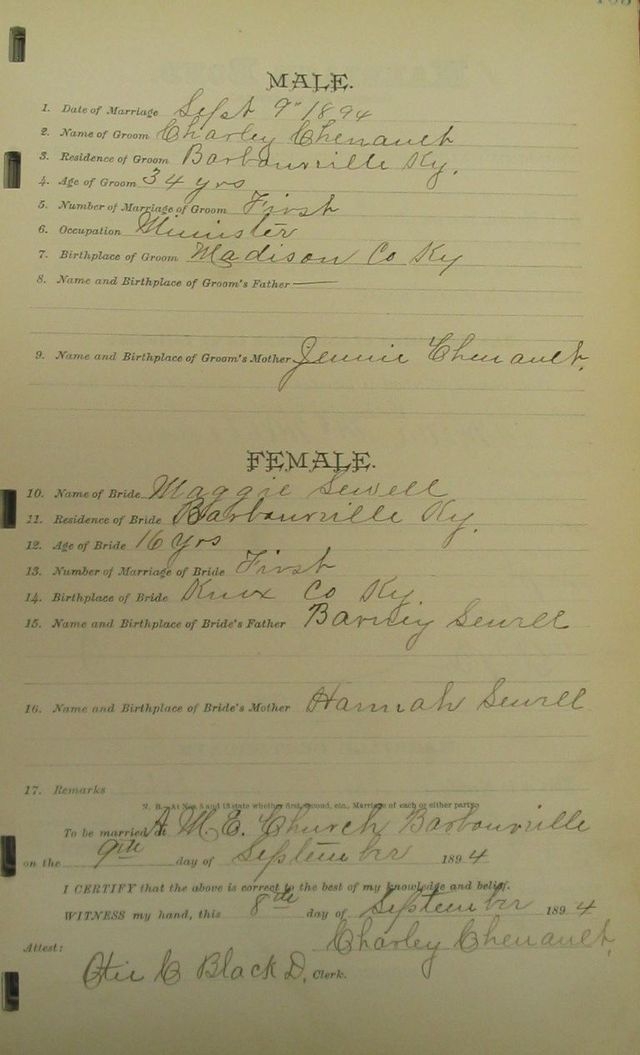 MALE.
1. Date of Marriage Sept 9" 1894
2. Name of Groom Charley Chenault
3. Residence of Groom Barbourville Ky.
4. Age of Groom 34 yrs
5. Number of Marriage of Groom First
6. Occupation Minister
7. Birthplace of Groom Madison Co Ky
8. Name and Birthplace of Groom's Father —
9. Name and Birthplace of Groom's Mother Jennie Chenault.
FEMALE.
10. Name of Bride Maggie Sewell
11. Residence of Bride Barbourville Ky.
12. Age of Bride 16 yrs
13. Number of Marriage of Bride First
14. Birthplace of Bride Knox Co Ky
15. Name and Birthplace of Bride's Father Sewell
16. Name and Birthplace of Bride's Mother Hannah Sewell
17. Remarks
N. B.—At Nos. 5 and 13 state whether first, second, etc., Marriage of each or either party.
To be married at A. M. E. Church Barbourville
on the 9th day of September 1894
I CERTIFY that the above is correct to the best of my knowledge and belief.
WITNESS my hand, this 8th day of September 1894
Charley Chenault.
Attest:
C Black D. Clerk.